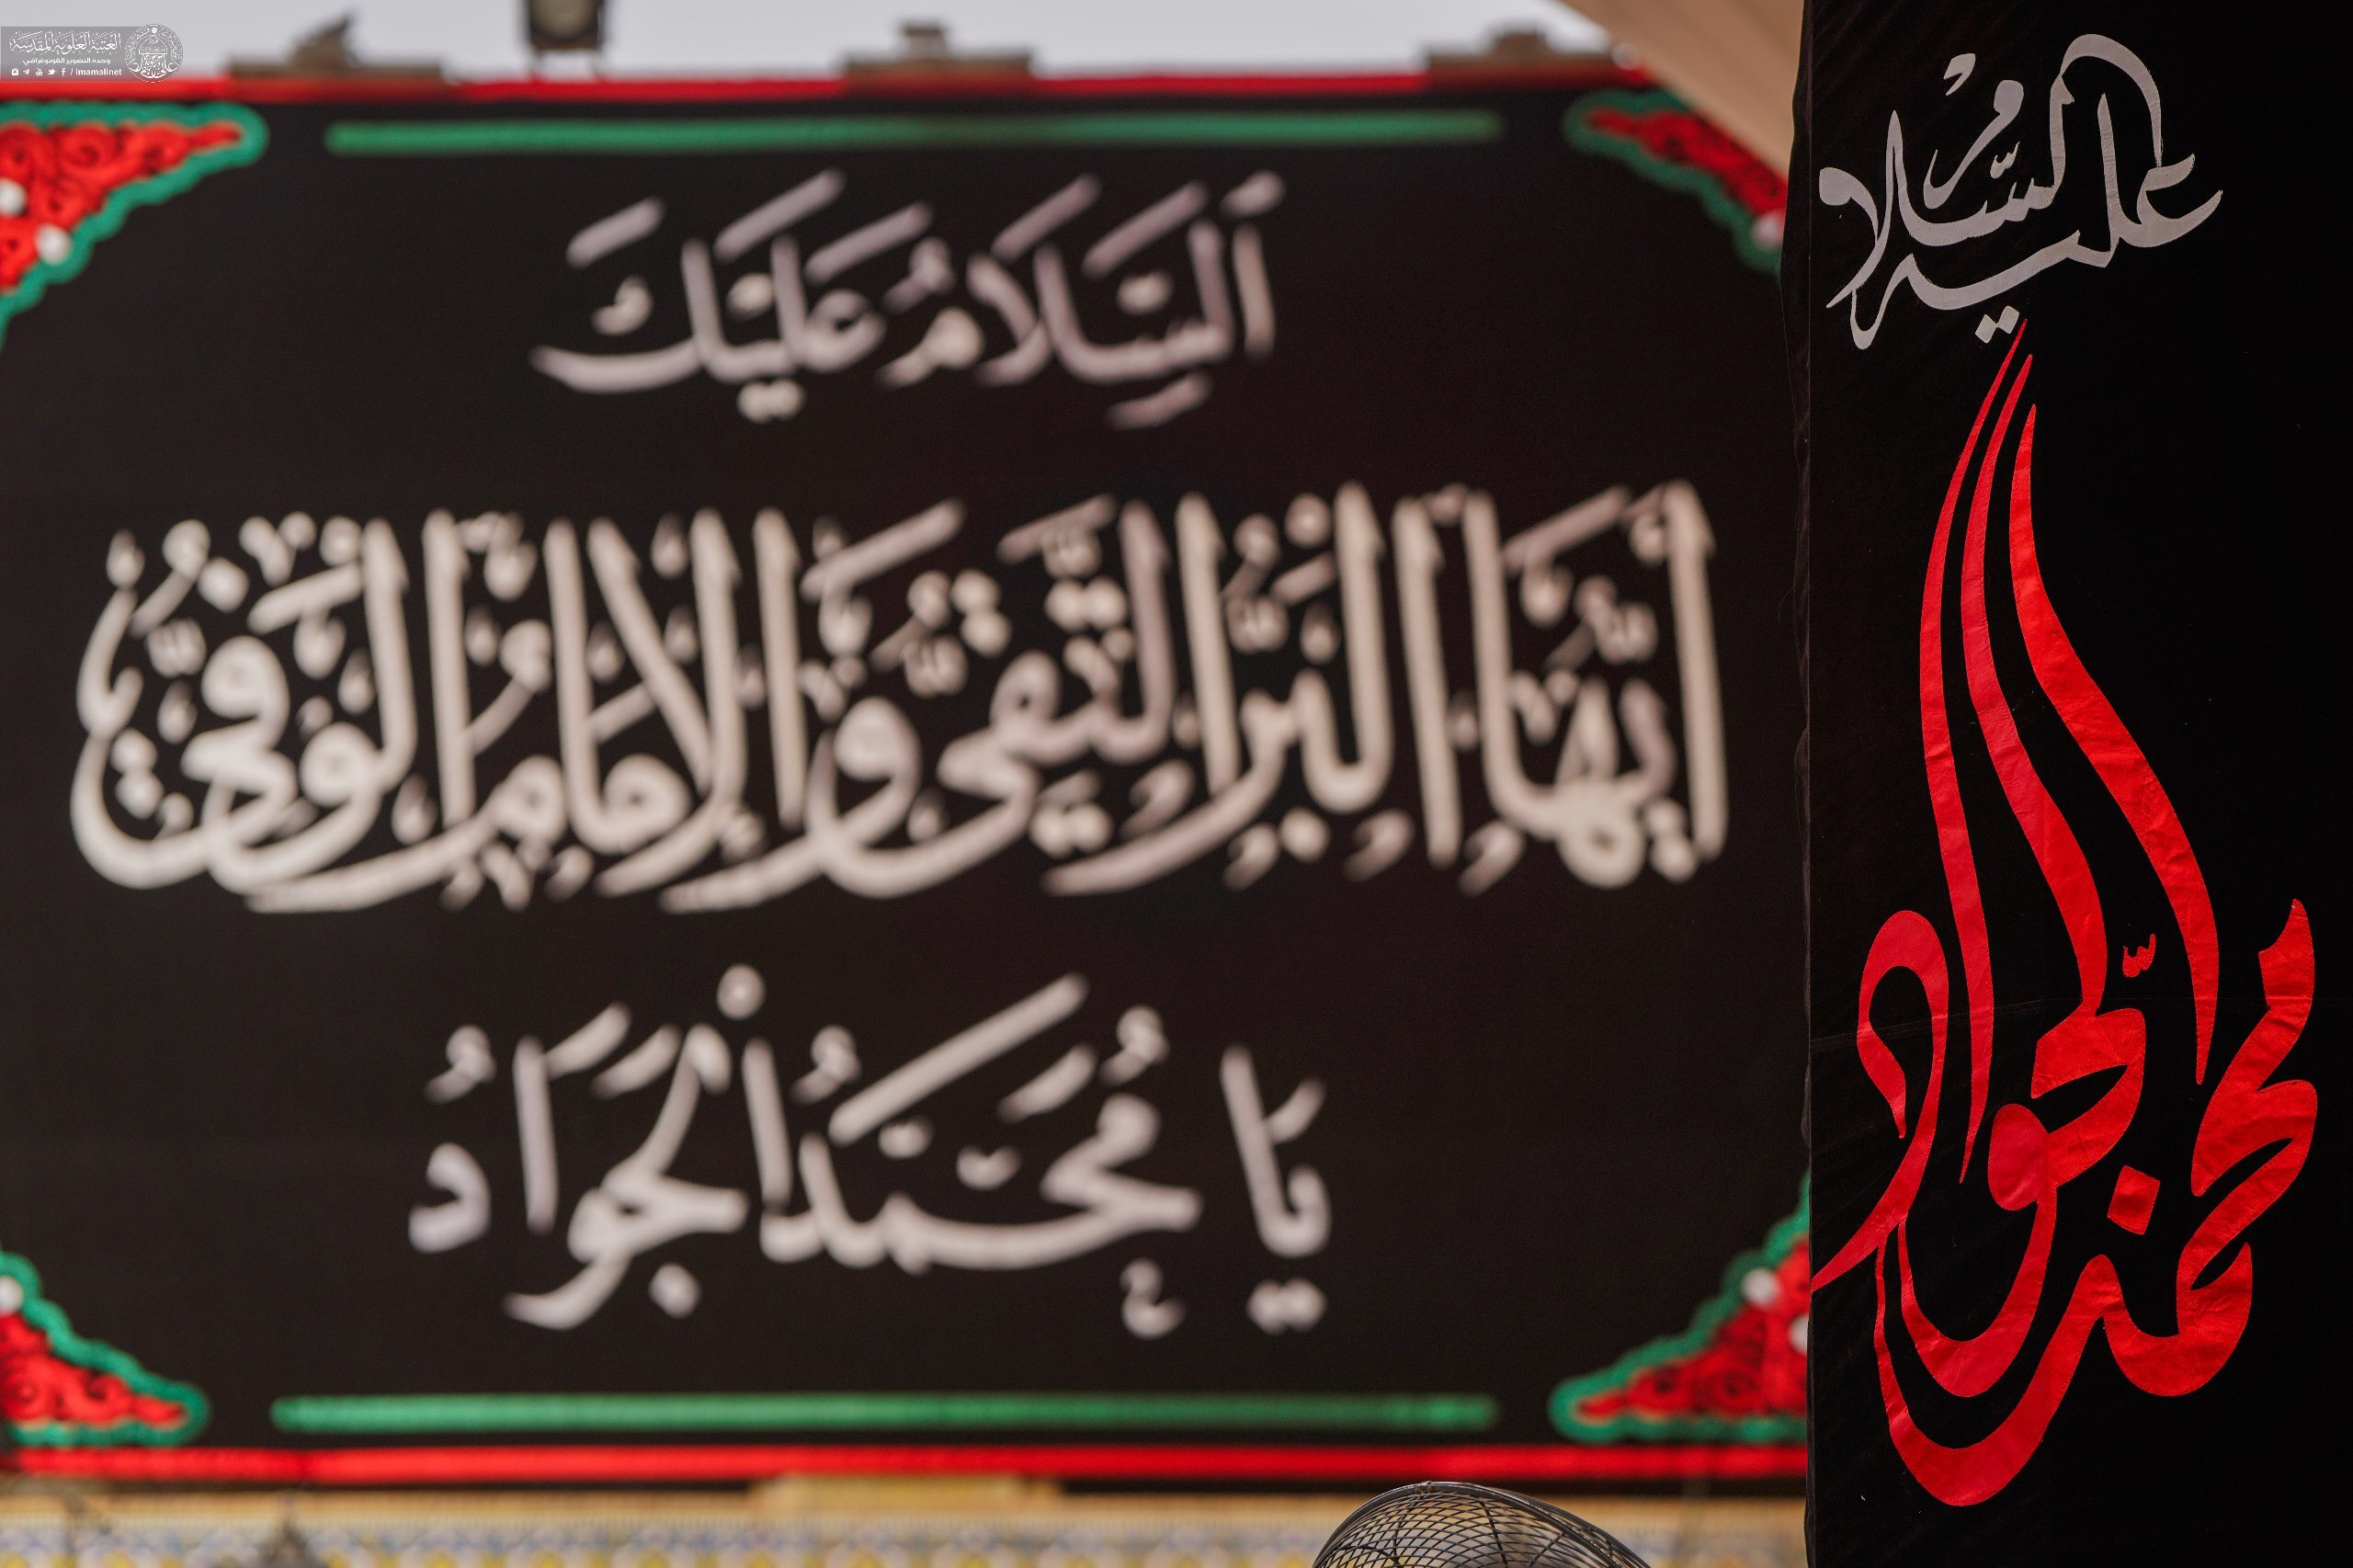 العتبة العلوية المقدسة
وحدة التصوير الفوتوغرافي
/ imamalinet
اَلسَّلَامُ عَلَيْكَ
اَيُّهَا الْبَرُّ التَّقِيُّ وَالْاِمَامُ الْوَفِيُّ
يَا مُحَمَّدُ الْجَوَادُ
عليه السلام
محمد الجواد